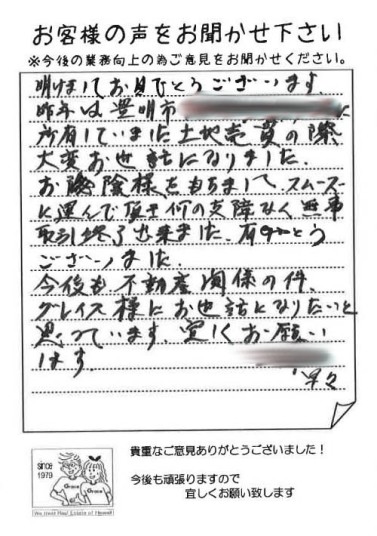 お客様の声をお聞かせ下さい
※今後の業務向上の為ご意見をお聞かせください。
明けましておめでとうございます。
昨年は豊明市
所有していました土地売買の際
大変お世話になりました。
お蔭様をもちまして、スムーズ
に運んで頂き何の支障なく無事
取引終了出来ました。有難とう
ございました。
今後も不動産関係の件、
グレイス様にお世話になりたいと
思っています。宜しくお願い
します。
早々
貴重なご意見ありがとうございました！
今後も頑張りますので
宜しくお願い致します
since
1979
Grace
Grace